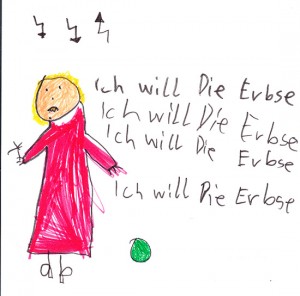 Ich will Die Erbse
Ich will Die Erbse
Ich will Die Erbse
Ich will Die Erbse